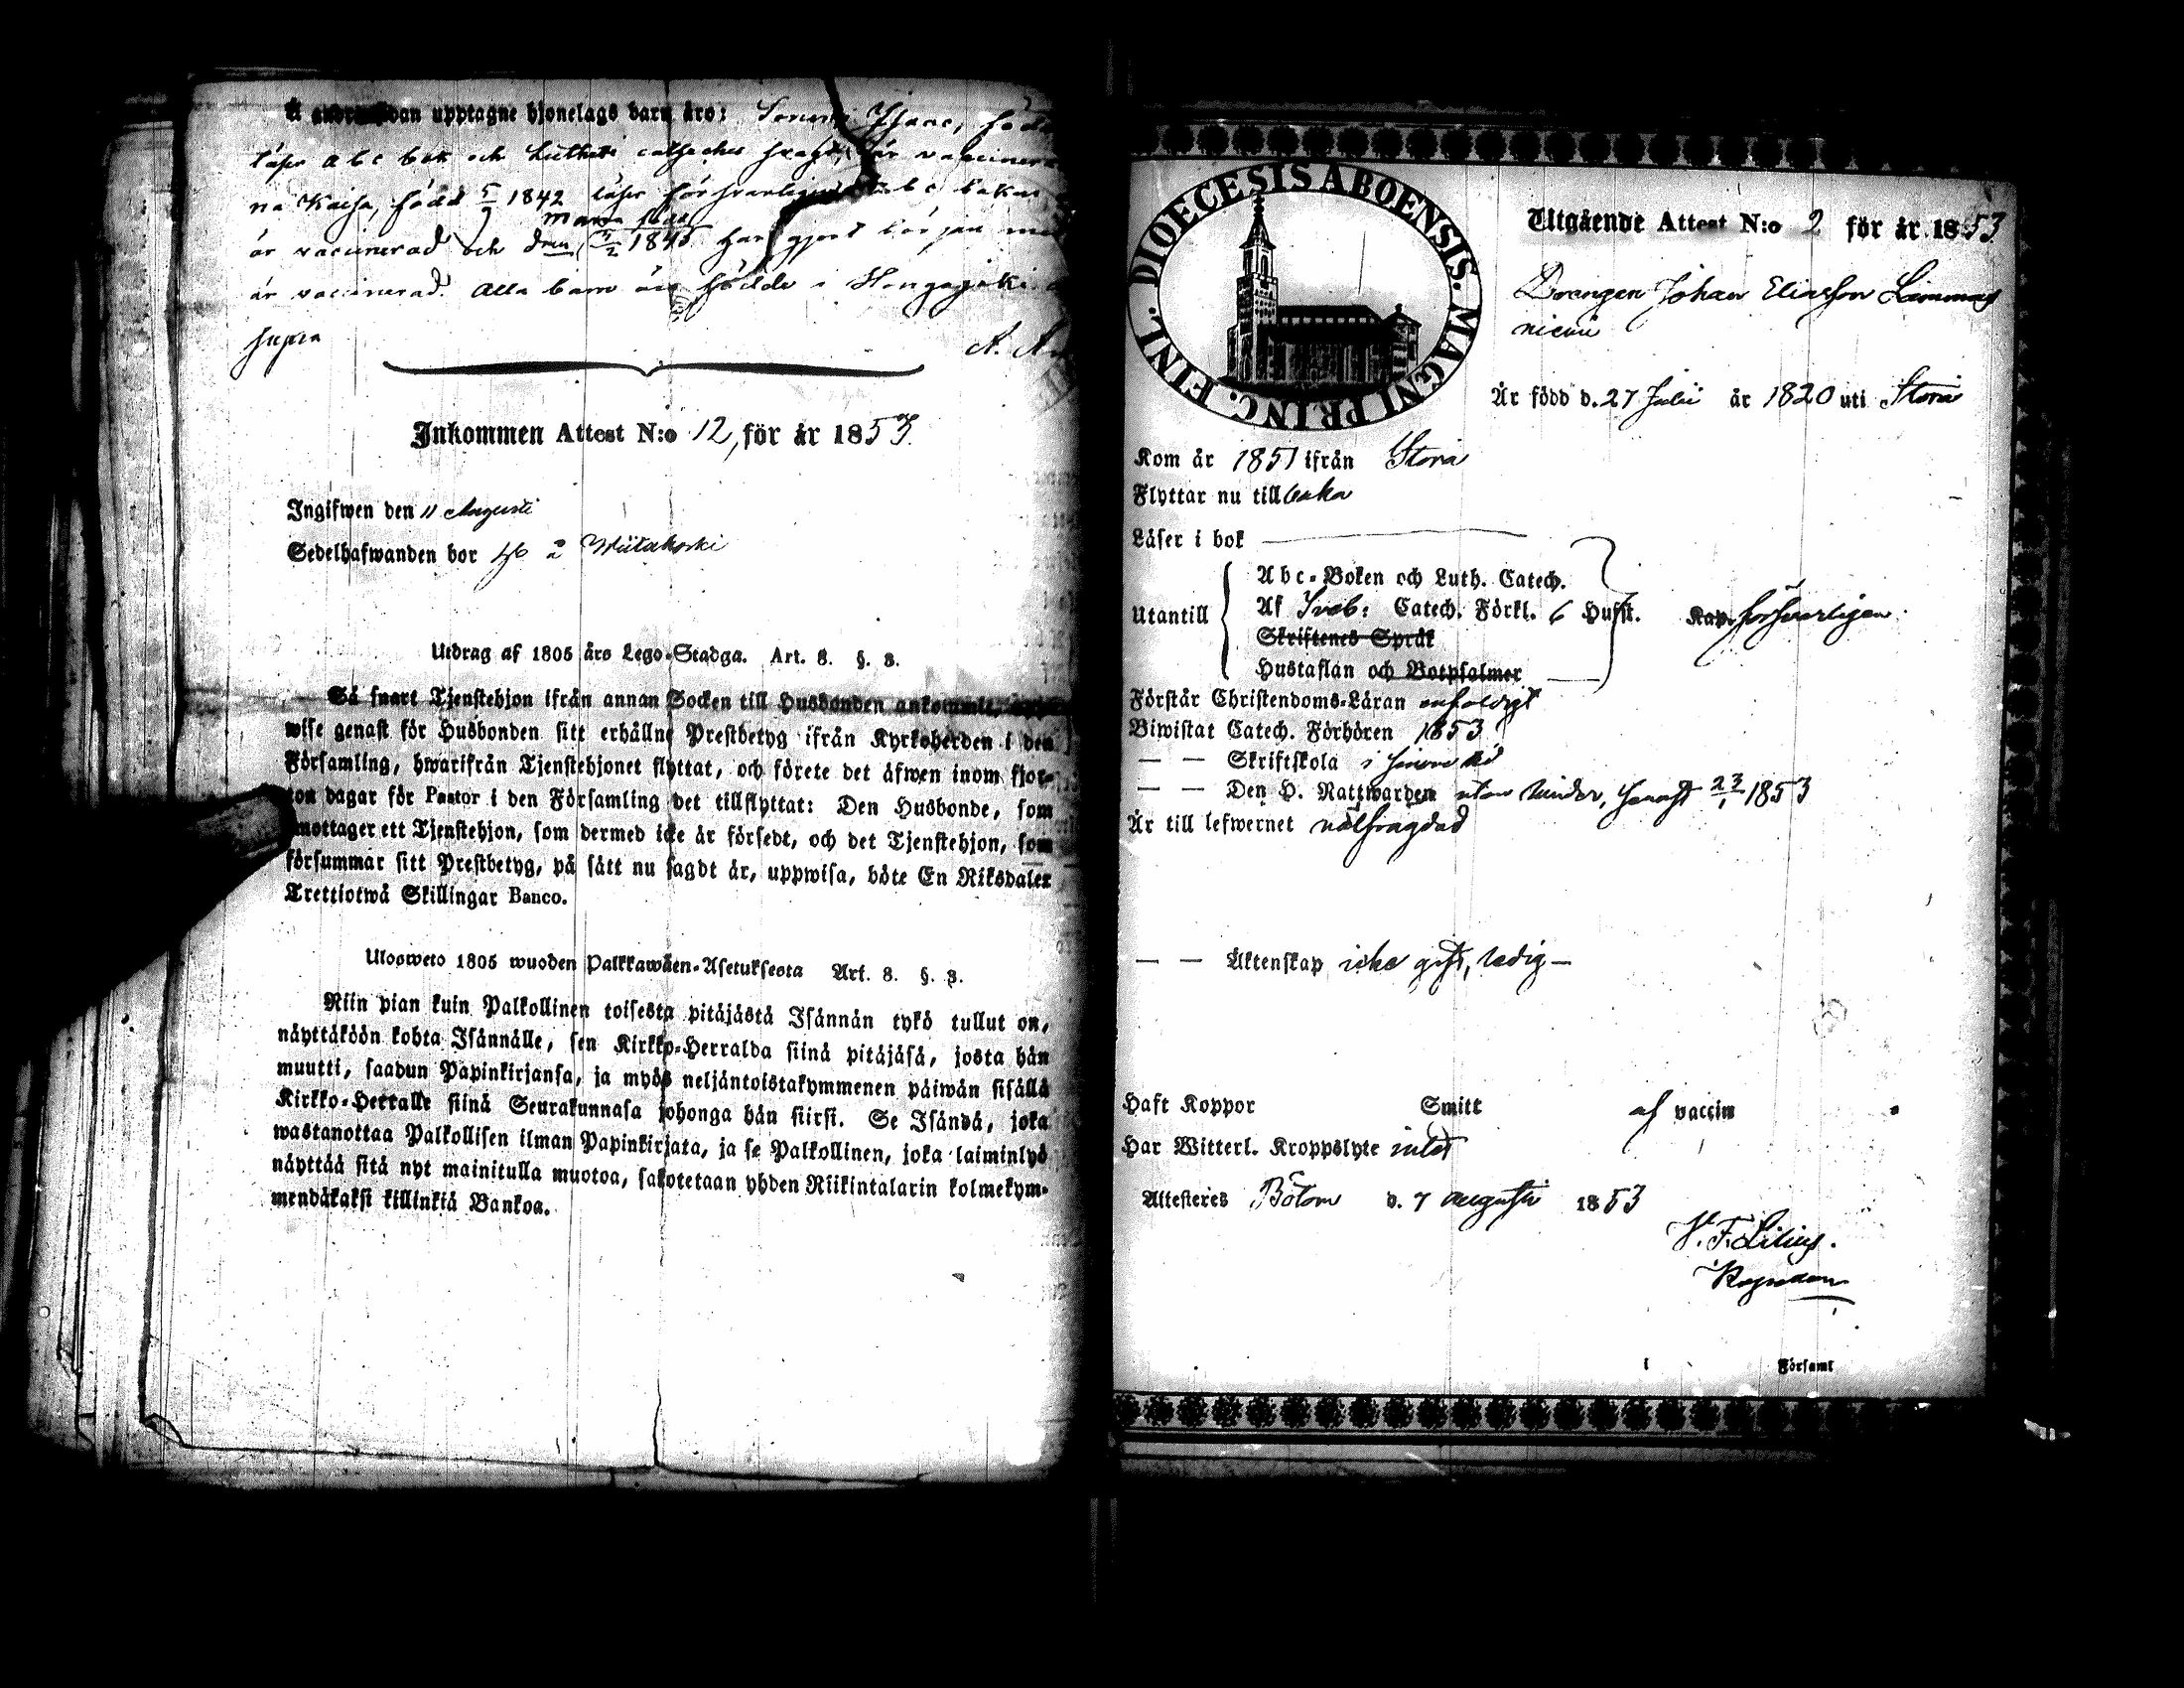 upptagne hjonelags barn äro: Isaac, född
läser abc bok och Lutheri är vaccinerad
na Kaisa, född 5/9 1842 läser försvarligen abc boken
är vaccinerad och den 5/2 1845 Har gjort början med
är vaccinerad. Alla barn äro födde i Hongojoki
supra
Inkommen Attest N:o 12, för år 1853.
Ingifwen den 11 Augusti
Sedelhafwanden bor å
Utdrag af 1805 års Lego-Stadga. Art. 8. §. 3.
Så snart Tjenstehjon ifrån annan Socken till Husbonden ankommit,
wise genast för Husbonden sitt erhållne Prestbetyg ifrån Kyrkoherden i den
Församling, hwarifrån Tjenstehjonet flyttat, och förete det äfwen inom fjor-
ton dagar för Pastor i den Församling det tillflyttat: Den Husbonde, som
emottager ett Tjenstehjon, som dermed icke är försedt, och det Tjenstehjon, som
försummar sitt Prestbetyg, på sätt nu sagdt är, uppwisa, böte En Riksdaler
Trettiotwå Skillingar Banco.
Ulosweto 1805 wuoden Palkkawäen-Asetuksesta Art. 8. §. 3.
Niin pian kuin Palkollinen toisesta pitäjästä Isännän tykö tullut on,
näyttäköön kohta Isännälle, sen Kirkko-Herralda siinä pitäjäsä, josta hän
muutti, saadun Papinkirjansa, ja myös neljäntoistakymmenen päiwän sisällä
Kirkko-Herralle siinä Seurakunnasa johonga hän siirsi. Se Isändä, joka
wastanottaa Palkollisen ilman Papinkirjata, ja se Palkollinen, joka laiminlyö
näyttää sitä nyt mainitulla muotoa, sakotetaan yhden Riikintalarin kolmekym-
mendäkaksi killinkiä Bankoa.
DIOECESIS ABOENSIS. MAGNI PRINC. FINL.
Utgående Attest N:o 2 för år 1853
Drengen Johan Eliasson Lammas
niemi
Är född d. 27 Julii år 1820 uti Storå
Kom år 1851 ifrån Storå
Flyttar nu tillbaka
Läser i bok
Abc-Boken och Luth. Catech.
Utantill Af Sveb: Catech. Förkl. 6 Hufst. Kap. försvarligen
Skriftenes Språk
Hustaflan och Botpsalmer
Förstår Christendoms-Läran enfaldigt
Biwistat Catech. Förhören 1853
— — Skriftskola i sinom tid
— — Den H. Nattwarden utan hinder, senast 23/1 1853
Är till lefwernet välfrägdad
— — Äktenskap icke gift, ledig —
Haft Koppor Smitt af vaccin
Har Witterl. Kroppslyte intet
Attesteres Bötom d. 7 augusti 1853
Församl